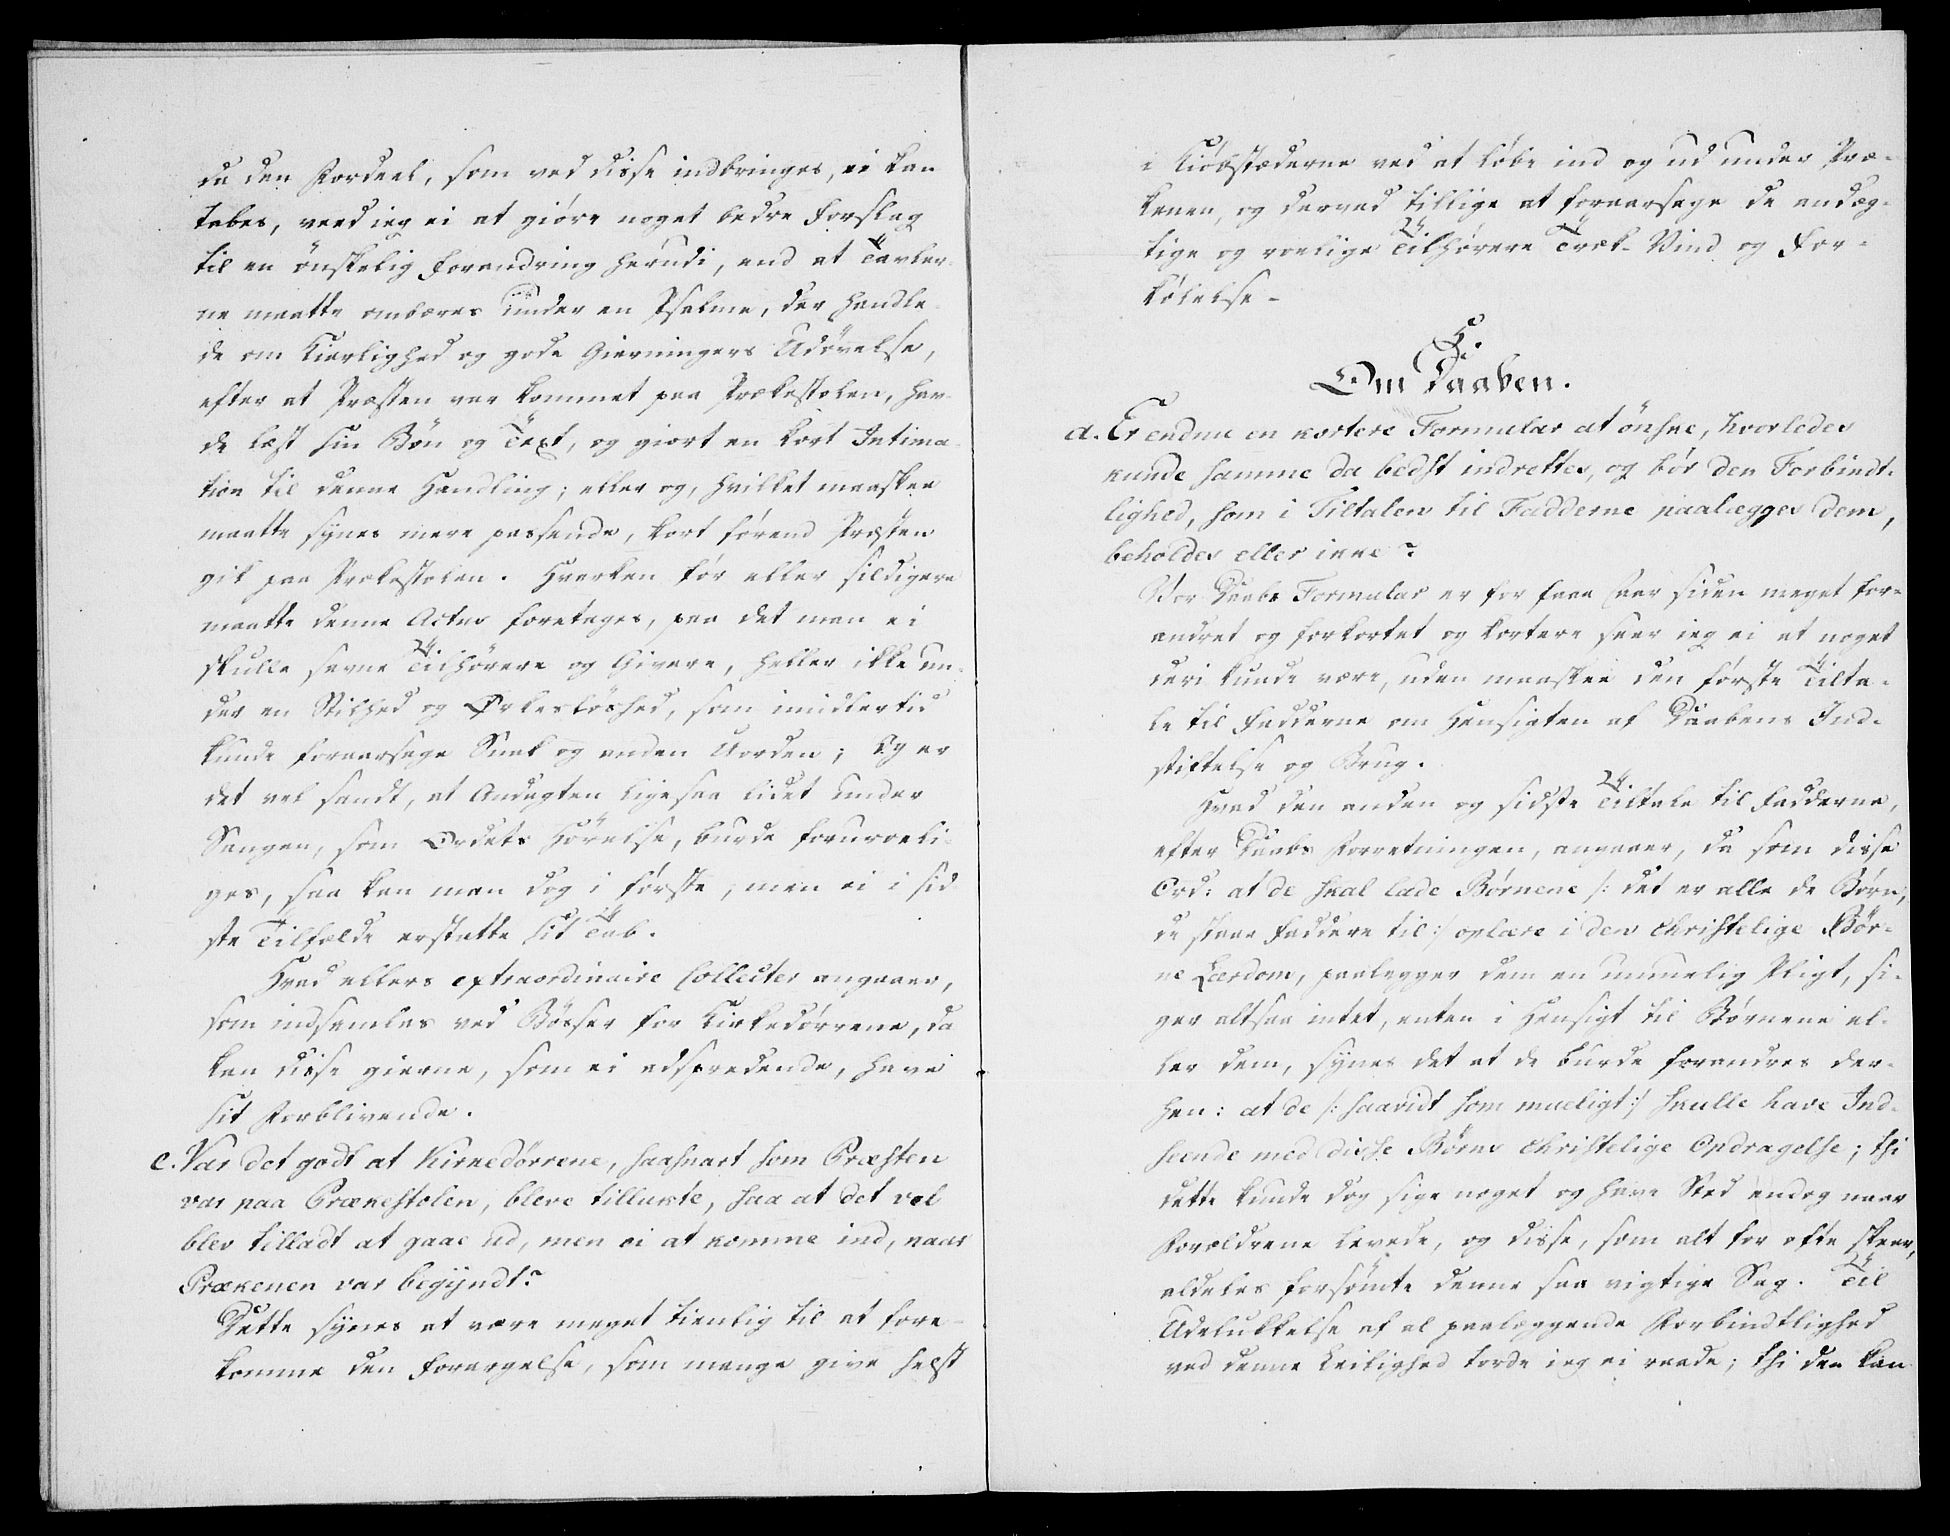 da den Fordeel, som ved disse indbringes, ei kan
tabes, veed ieg ei at giöre noget bedre Forslag
til en önskelig Forandring herudi, end at Tavler-
ne maatte ombæres under en Psalme, der handle-
de om Kierlighed og gode Gierningers Udövelse,
efter at Præsten var kommet paa Prækestolen, hav-
de læst sin Bön og Text, og giort en kort Intima-
tion til denne Handling; eller og, hvilket maaskee
maatte synes mere passende, kort förend Præsten
gik paa Prækestolen. Hverken för eller sildigere
maatte denne Actus foretages, paa det man ei
skulle savne Tilhörere og Givere, heller ikke un-
der en Stilhed og Ørkeslöshed, som imidlertid
kunde foraarsage Snak og anden Uorden; Og er
det vel sandt, at Andagten ligesaa lidet under
Sangen, som Ordets Hörelse, burde foruroeli-
ges, saa kan man dog i förste, men ei i sid-
ste Tilfælde erstatte sit Tab.
Hvad ellers extraordinaire Collecter angaaer,
som indsamles ved Bösser for Kirkedörrene, da
kan disse gierne, som ei adspredende, have
sit Forblivende.
c. Var det godt at Kirkedörrene, saasnart som Præsten
var paa Prækestolen, bleve tillukte, saa at det vel
blev tilladt at gaae ud, men ei at komme ind, naar
Prækenen var begÿndt?
Dette synes at være meget tienlig til at fore-
komme den Forargelse, som mange give helst
i Kiöbstæderne ved at löbe ind og ud under Præ-
kenen, og derved tillige at foraarsage de andæg-
tige og roelige Tilhörere Træk-Vind og For-
kölelse-
H.
Om Daaben.
a. Er endnu en kortere Formular at önske, hvorledes
kunde samme da bedst indrettes, og bör den Forbindt-
lighed, som i Tiltalen til Fadderne paalægges dem,
beholdes eller ikke?
Vor Daabs Formular er for faae Aar siden meget for-
andret og forkortet og kortere seer ieg ei at noget
deri kunde være, uden maaskee den förste Tilta-
le til Fadderne om Hensigten af Daabens Ind-
stiftelse og Brug.
Hvad den anden og sidste Tiltale til Fadderne,
efter Daabs Forretningen, angaaer, da som disse
Ord: at de skal lade Börnene /: det er alle de Börn,
de staae Faddere til :/ oplære i den christelige Bör-
ne Lærdom, paalegger dem en umuelig Pligt, si-
ger altsaa intet, enten i Hensigt til Börnene el-
ler dem, synes det at de burde forandres der-
hen: at de /: saavidt som mueligt :/ skulle have Ind-
seende med disse Börns christelige Opdragelse; thi
dette kunde dog sige noget og have Sted endog naar
Forældrene levede, og disse, som alt for ofte skeer,
aldeles forsömte denne saa vigtige Sag. Til
Udelukkelse af al paalæggende Forbindtlighed
ved denne Leilighed torde ieg ei raade; thi den kan